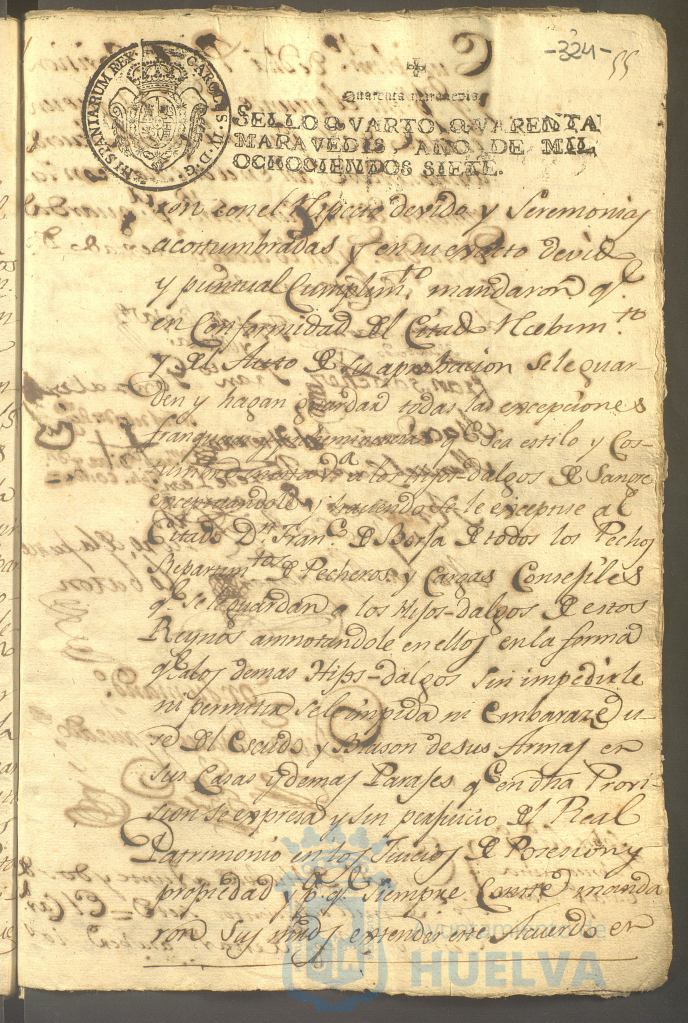 -324-
55
HISPANIARUM REX
CAROLUS IV D. G.
Quarenta maravedis
SELLO QVARTO, QVARENTA
MARAVEDIS, AÑO DE MIL
OCHOCIENTOS SIETE.
ron con el Respecto devido y Seremonias
acostumbradas y en su efecto devido
y puntual Cumplimto. mandaron qe.
en Conformidad del Citado Recibimto.
y del Auto de su aprobacion se le guar-
den y hagan guardar todas las excepciones
franquezas y preeminencias qe. sea estilo y Cos-
a los Hijos-dalgos de Sangre
exceptandole y haciendo se le exceptue al
Citado Dn. Franco. de Borja de todos los Pechos
Repartimtos. de Pecheros y Cargas Consejiles
qe. se le guardan a los Hijos-dalgos de estos
Reynos annotandole en ellos en la forma
qe. a los demas Hijos-dalgos sin impedirle
ni permitir se le impida ni embaraze u-
se del Escudo y Blason de sus Armas en
sus Casas y demas Parajes qe. en dha Provi-
sion se expresa y sin perjuicio del Real
Patrimonio en los Juicios de Posesion y
propiedad y pa. qe. Siempre Conste manda
ron sus mrds extender este Acuerdo en
HUELVA